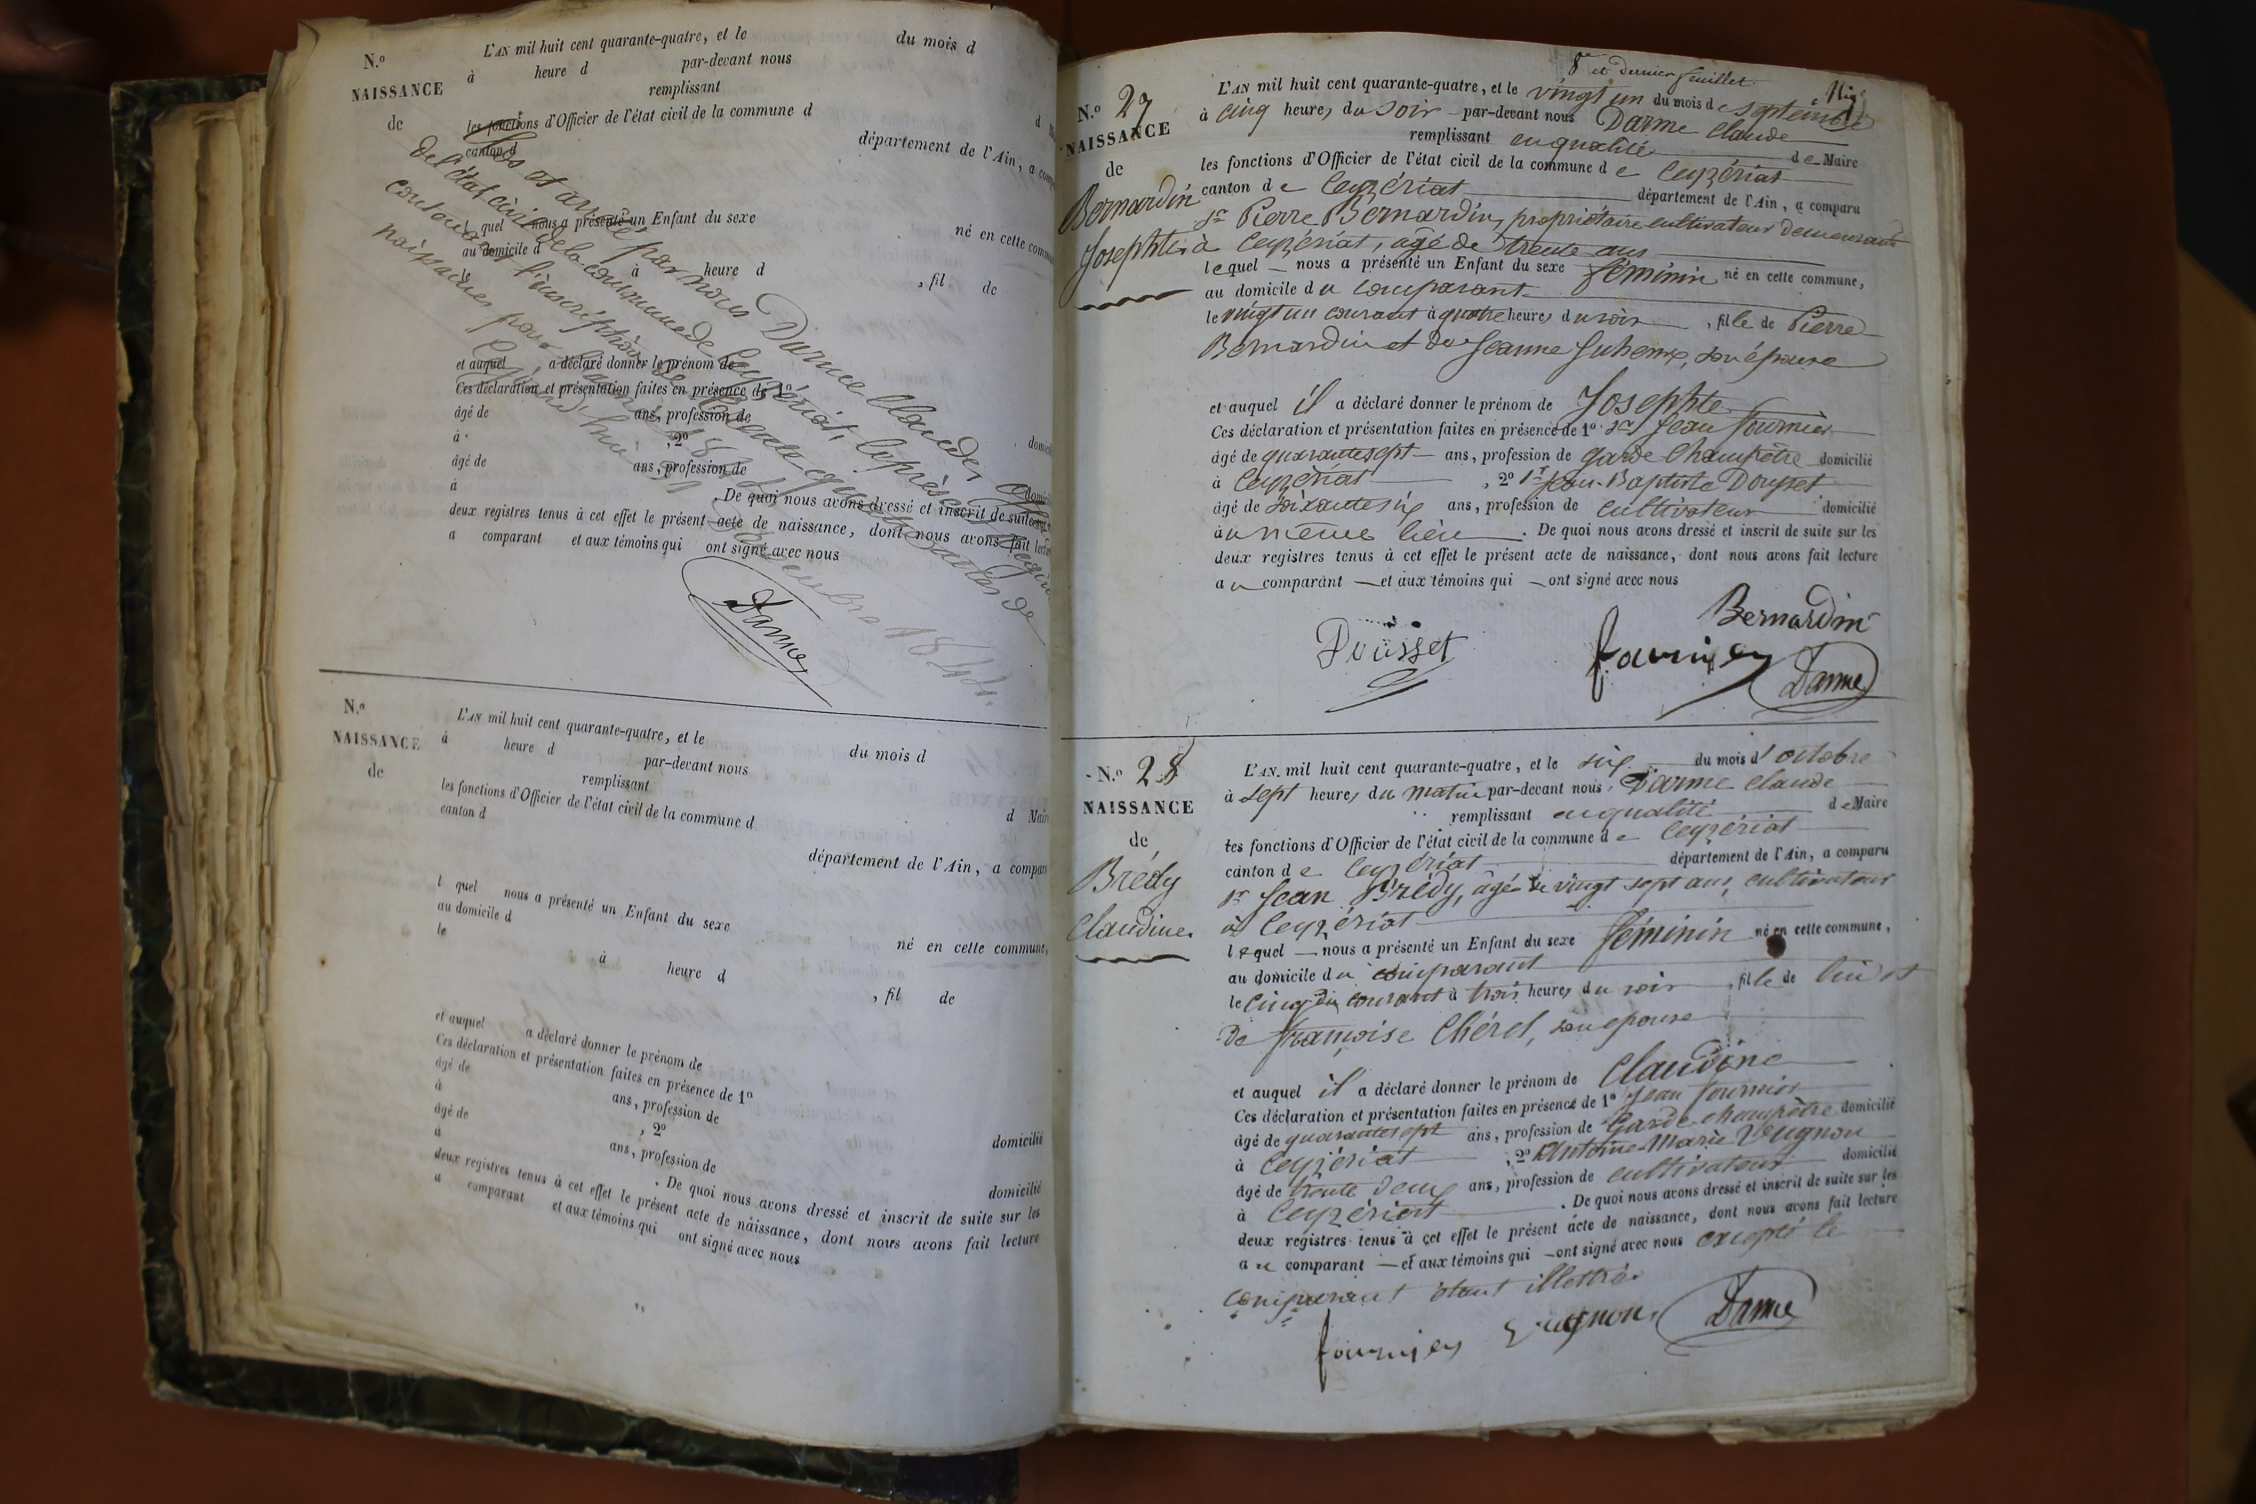 N.º
NAISSANCE
de
L'AN mil huit cent quarante-quatre, et le du mois d
à heure d par-devant nous
remplissant
les fonctions d'Officier de l'état civil de la commune d
canton d
département de l'Ain, a comp
l quel nous a présenté un Enfant du sexe né en cette commu
au domicile d
le à heure d , fil de
et auquel a déclaré donner le prénom de
Ces déclaration et présentation faites en présence de 1º
âgé de ans, profession de domici
à , 2º
âgé de ans, profession de domici
à . De quoi nous avons dressé et inscrit de suite
deux registres tenus à cet effet le présent acte de naissance, dont nous avons fait lectu
a comparant et aux témoins qui ont signé avec nous
Clos et arrêté par nous Darme Claude,
de l'état civil de la commune de Ceyzériat, le présent
contenant l'inscription de actes de
naissances pour 1844
31 Décembre 1844.
Darme
N.º
NAISSANCE
de
L'AN mil huit cent quarante-quatre, et le du mois d
à heure d par-devant nous
remplissant d Mair
les fonctions d'Officier de l'état civil de la commune d
canton d
département de l'Ain, a compar
l quel nous a présenté un Enfant du sexe né en cette commune,
au domicile d
le à heure d , fil de
et auquel a déclaré donner le prénom de
Ces déclaration et présentation faites en présence de 1º
âgé de ans, profession de domicilié
à , 2º
âgé de ans, profession de domicilié
à . De quoi nous avons dressé et inscrit de suite sur les
deux registres tenus à cet effet le présent acte de naissance, dont nous avons fait lecture
a comparant et aux témoins qui ont signé avec nous
8e et dernier feuillet.
N.º 27
NAISSANCE
de
Bernardin
Josephte
L'AN mil huit cent quarante-quatre, et le vingt un du mois de septembre
à cinq heures du soir par-devant nous Darme Claude
remplissant en qualité de Maire
les fonctions d'Officier de l'état civil de la commune de Ceyzériat
canton de Ceyzériat département de l'Ain, a comparu
sr Pierre Bernardin, propriétaire cultivateur demeurant
à Ceyzériat, âgé de trente ans
lequel nous a présenté un Enfant du sexe féminin né en cette commune,
au domicile du comparant
le vingt un courant à quatre heures du soir , fille de Pierre
Bernardin et de Jeanne son épouse
et auquel il a déclaré donner le prénom de Josephte
Ces déclaration et présentation faites en présence de 1º sr Jean Fournier
âgé de quarante sept ans, profession de garde champêtre domicilié
à Ceyzériat , 2º sr Jean-Baptiste Dousset
âgé de soixante six ans, profession de cultivateur domicilié
au même lieu . De quoi nous avons dressé et inscrit de suite sur les
deux registres tenus à cet effet le présent acte de naissance, dont nous avons fait lecture
au comparant et aux témoins qui ont signé avec nous
Bernardin
Dousset fournier Darme
N.º 28
NAISSANCE
de
Brédy
Claudine.
L'AN mil huit cent quarante-quatre, et le six du mois d'octobre
à sept heures du matin par-devant nous Darme Claude
remplissant en qualité de Maire
les fonctions d'Officier de l'état civil de la commune de Ceyzériat
canton de Ceyzériat département de l'Ain, a comparu
sr Jean Brédy, âgé de vingt sept ans, cultivateur
à Ceyzériat
lequel nous a présenté un Enfant du sexe féminin né en cette commune,
au domicile du comparant
le cinq du courant à trois heures du soir , fille de lui et
de françoise Chérel, son épouse
et auquel il a déclaré donner le prénom de Claudine
Ces déclaration et présentation faites en présence de 1º Jean Fournier
âgé de quarante sept ans, profession de Garde champêtre domicilié
à Ceyzériat , 2º Antoine Marie Vugnon
âgé de trente deux ans, profession de cultivateur domicilié
à Ceyzériat . De quoi nous avons dressé et inscrit de suite sur les
deux registres tenus à cet effet le présent acte de naissance, dont nous avons fait lecture
au comparant et aux témoins qui ont signé avec nous excepté le
comparant étant illettré.
fournier Vugnon Darme